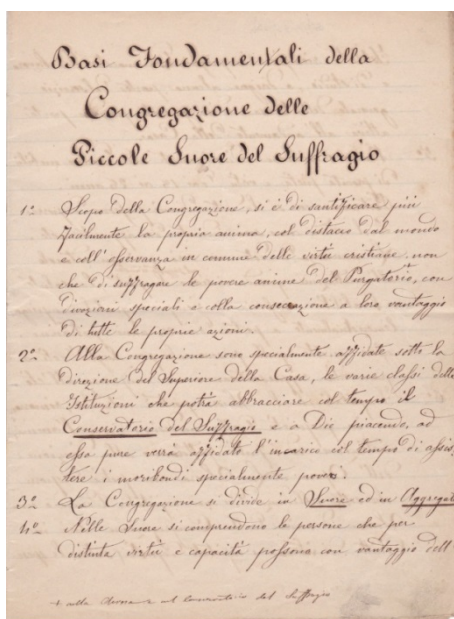 Basi Fondamentali della
Congregazione delle
Piccole Suore del Suffragio
1º Scopo della Congregazione, si è di santificare più
facilmente la propria anima, col distacco dal mondo
e coll'osservanza in comune delle virtù cristiane, non
che di suffragare le povere anime del Purgatorio, con
divozioni speciali e colla consecrazione a loro vantaggio
di tutte le proprie azioni.
2º Alla Congregazione sono specialmente affidate sotto la
direzione del Superiore della Casa, le varie classi delle
Istituzioni che potrà abbracciare col tempo il
Conservatorio del Suffragio e a Dio piacendo, ad
essa pure verrà affidato l'incarico col tempo di assis
tere i moribondi specialmente poveri.
3º La Congregazione si divide in Suore ed in Aggregate
4º Nelle Suore si comprendono le persone che per
distinta virtù e capacità possono con vantaggio dell
del Suffragio